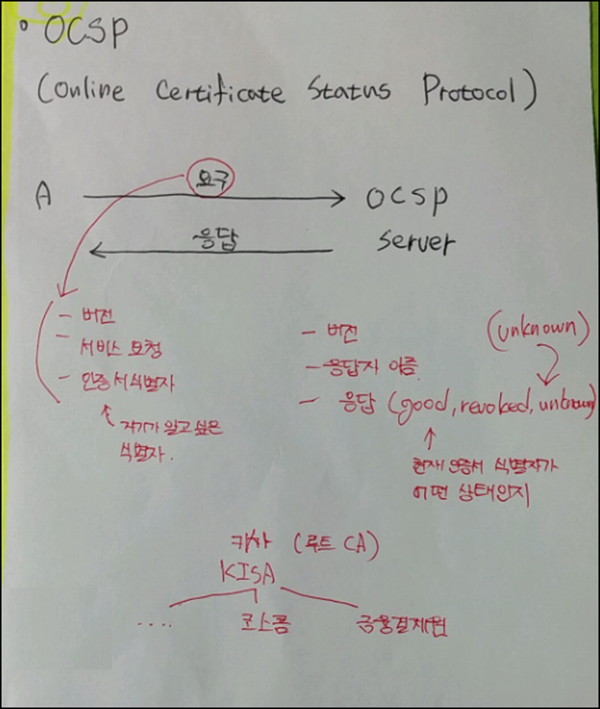 • OCSP
(Online Certificate Status Protocol)
요구
A → OCSP
응답
server
- 버전
- 서비스 요청
- 인증서식별자
자기가 알고 싶은
식별자.
- 버전
- 응답자 이름.
(unknown)
- 응답 (good, revoked, unknown)
현재 인증서 식별자가
어떤 상태인지
키사 (루트 CA)
KISA
....
코스콤
금융결제원